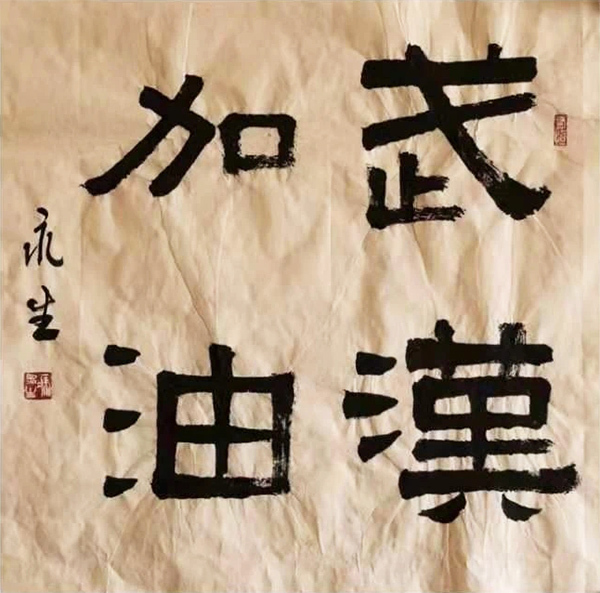 武漢
加油
生